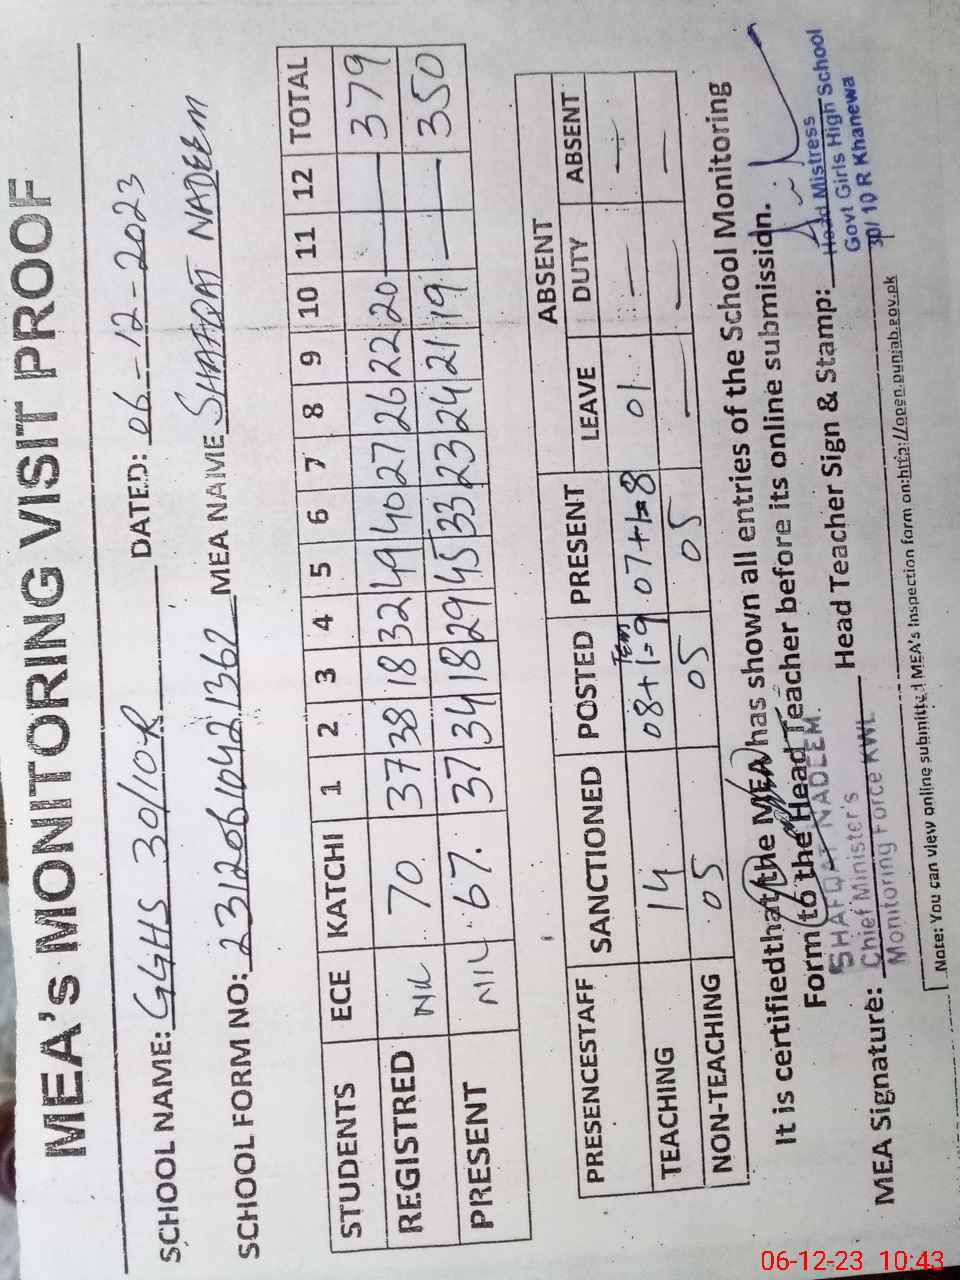 MEA's MONITORING VISIT PROOF
SCHOOL NAME: GGHS 30/10R DATED: 06-12-2023
SCHOOL FORM NO: 23120610421362 MEA NAME SHAFQAT NADEEM
STUDENTS ECE KATCHI 1 2 3 4 5 6 7 8 9 10 11 12 TOTAL
REGISTRED NIL 70 37 38 18 32 49 40 27 26 22 20 — — 379
PRESENT NIL 67. 37 34 18 29 45 33 23 24 21 19 — — 350
ABSENT
PRESENCESTAFF SANCTIONED POSTED PRESENT LEAVE DUTY ABSENT
TEACHING 14 08+1=9 07+1=8 01 — —
NON-TEACHING 05 05 05 — — —
It is certifiedthat (the MEA) has shown all entries of the School Monitoring
Form (to the Head Teacher before its online submission.
SHAFQAT NADEEM
Chief Minister's
Monitoring Force KWL
MEA Signature: Head Teacher Sign & Stamp:
Head Mistress
Govt Girls High School
30/10 R Khanewa
Note: You can view online submitted MEA's Inspection form on:http://open.punjab.gov.pk
06-12-23 10:43